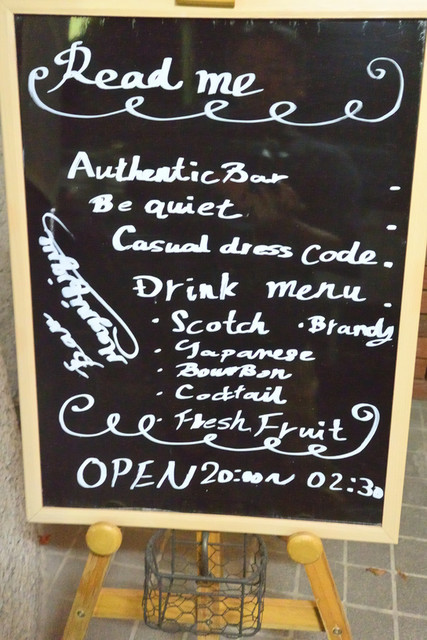 Read me
Authentic Bar
Be quiet
Casual dress code.
Drink menu
· Scotch · Brandy
· Japanese
· BourBon
· Cocktail
· Fresh Fruit
OPEN 20:00~ 02:30
Bar